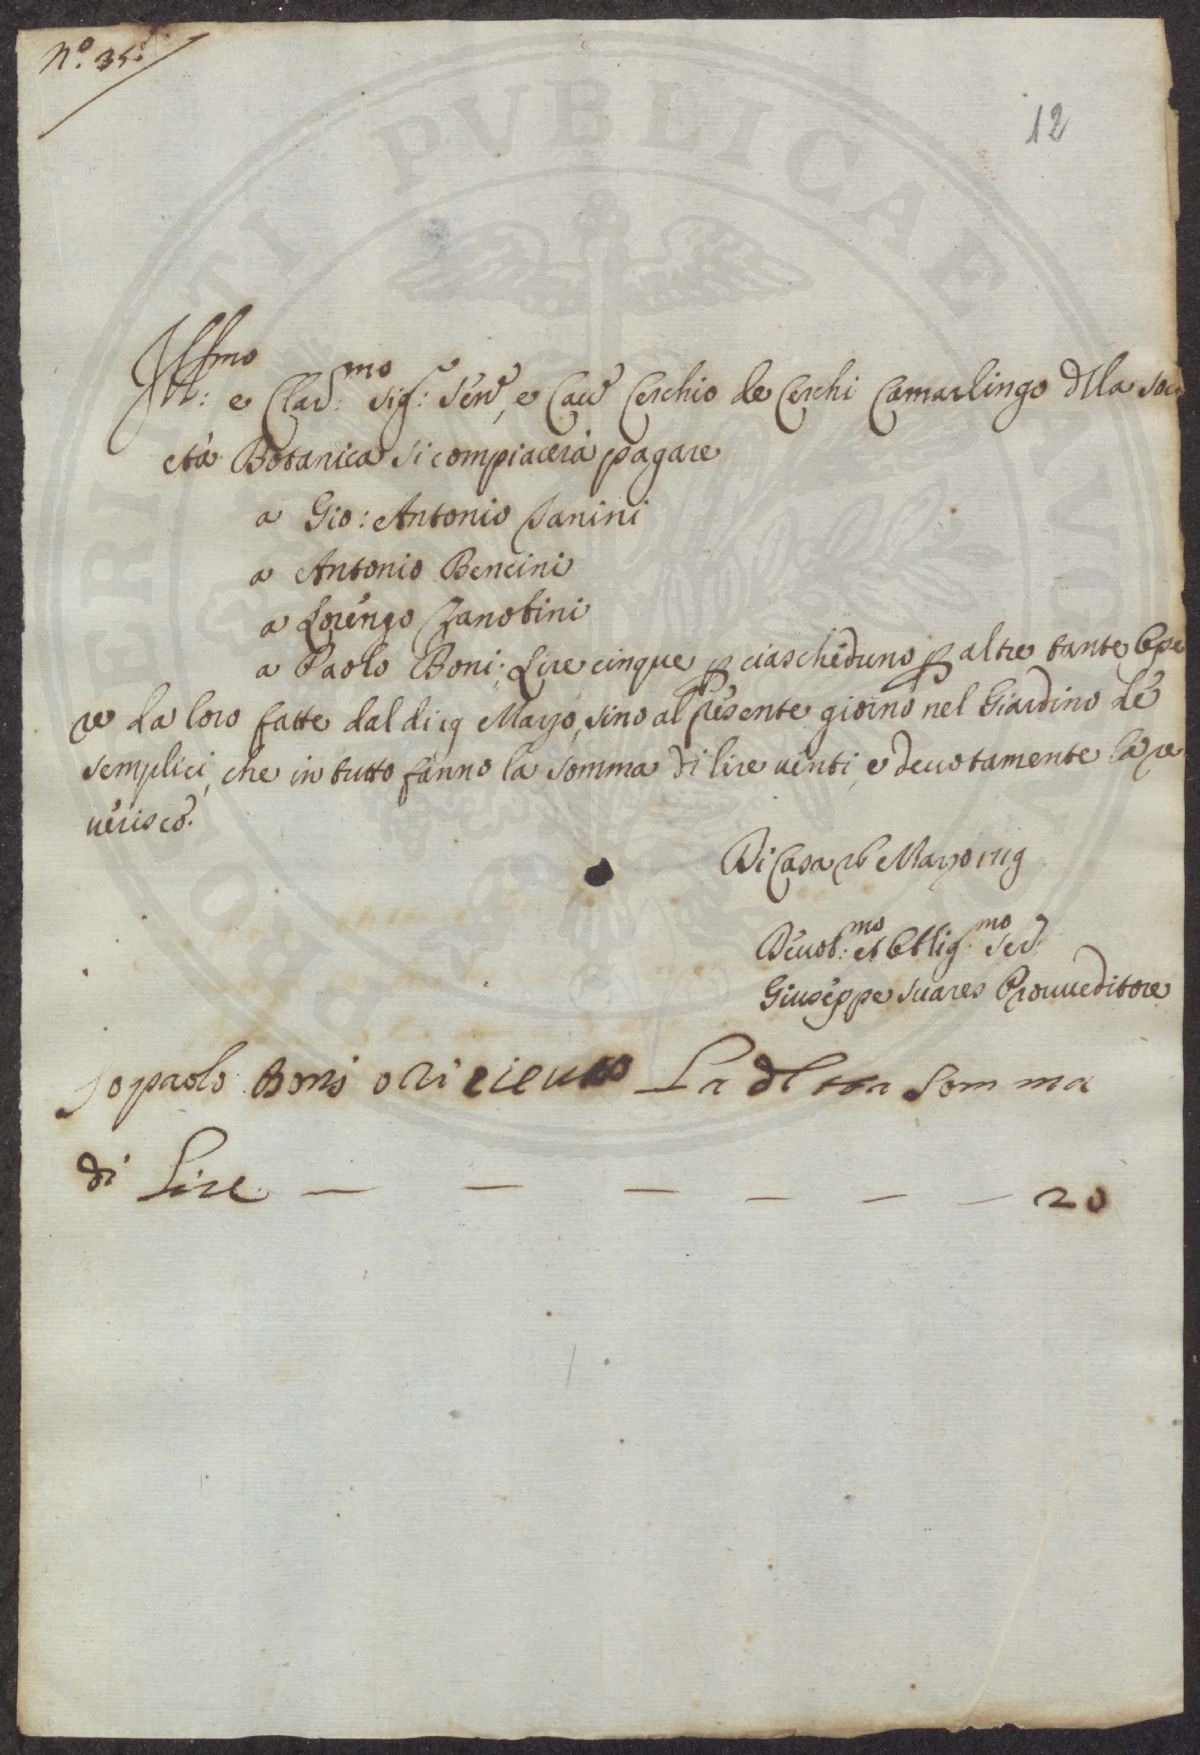 N.º 35.
12
Ill:mo e Clar:mo Sig:r Sen:re, e Cav:re Cerchio de Cerchi Camarlingo dlla Soci
età Botanica si compiacerà pagare
a Gio: Antonio Janini
a Antonio Bencini
a Lorenzo Zanobini
a Paolo Boni; Lire cinque p ciascheduno p altre tante Ope
re da loro fatte dal di 19 Marzo, sino al presente giorno nel Giardino de
semplici, che in tutto fanno la somma di lire venti, e devotamente la re
verisco.
Di Casa 26 Marzo 1719
Devot:mo et Obblig:mo Ser:
Giuseppe Suares Provveditore
Jo paolo Boni o riceuto La dta somma
di Lire — — — — — — 20
PVBLICAE